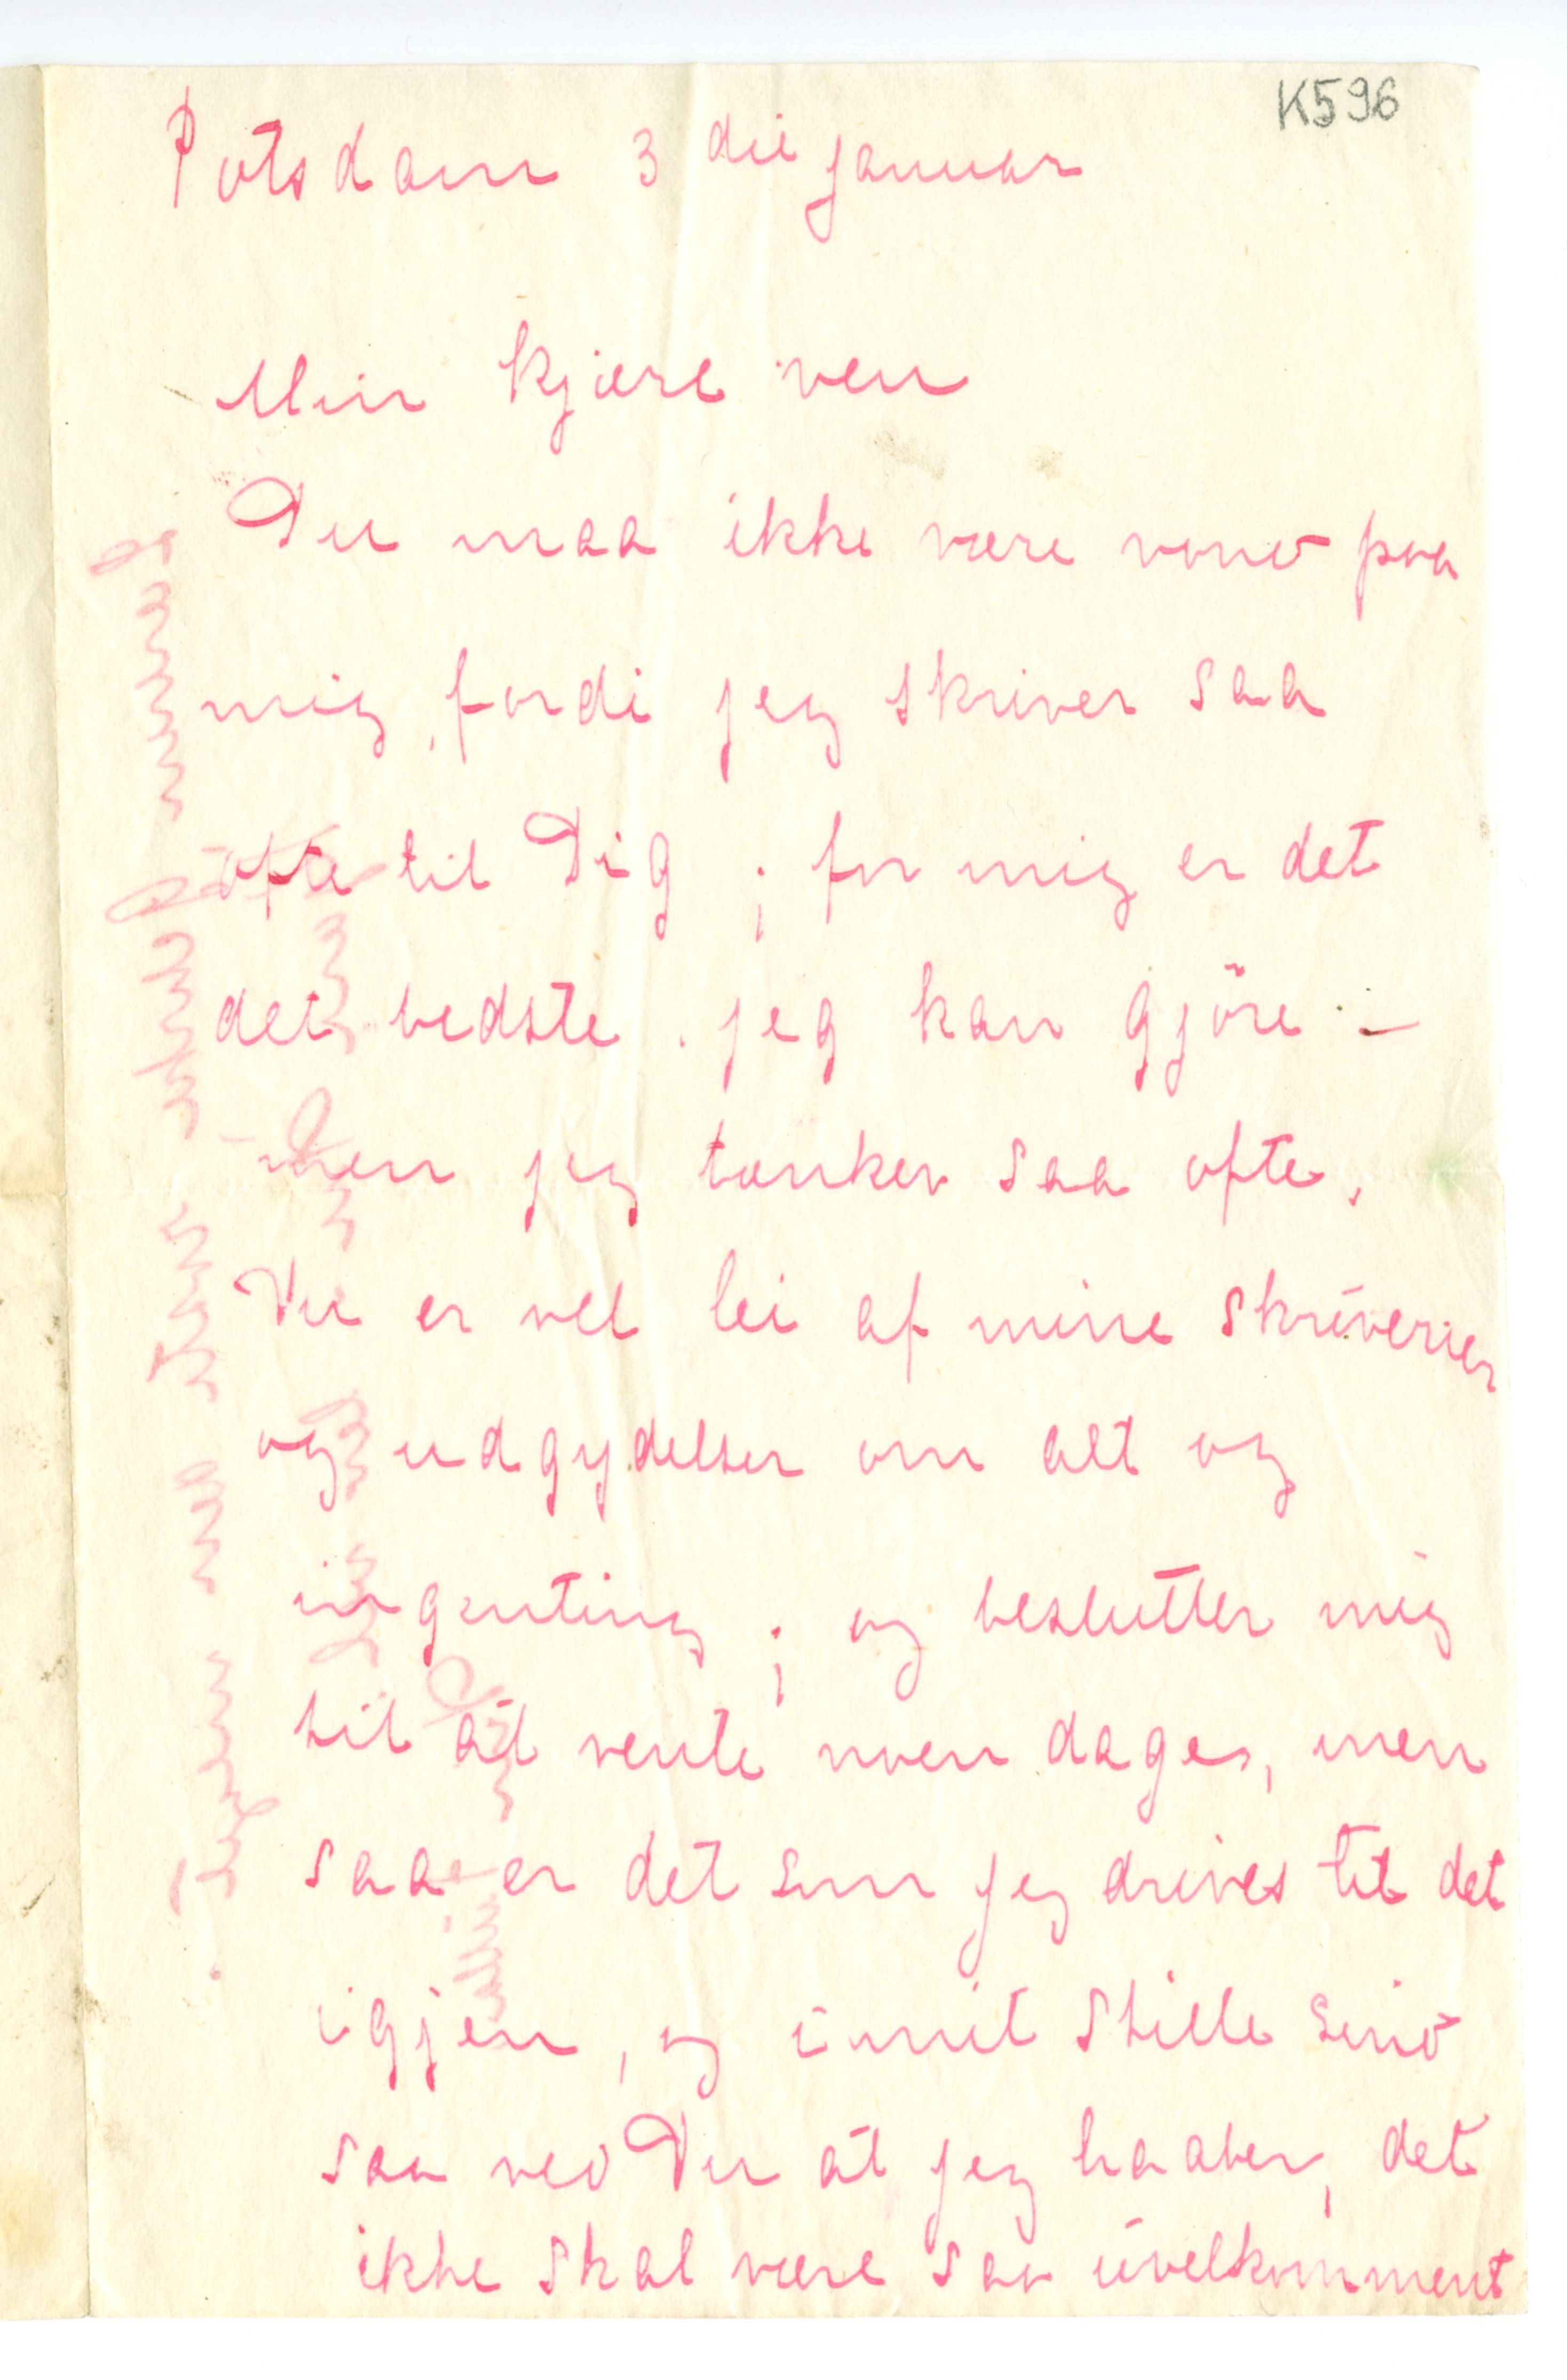 K596
Potsdam 3 die januar
Min kjære ven
Du maa ikke være vond paa
mig, fordi jeg skriver saa
ofte til Dig ; for mig er det
det bedste jeg kan gjöre –
men jeg tænker saa ofte,
Du er vel lei af mine skriverier
og udgydelser om alt og
ingenting ; og beslutter mig
til at vente noen dager, men
saa er det som jeg drives til det
igjen, og i mit stille sind
saa ved Du at jeg haaber, det
ikke skal være saa uvelkomment